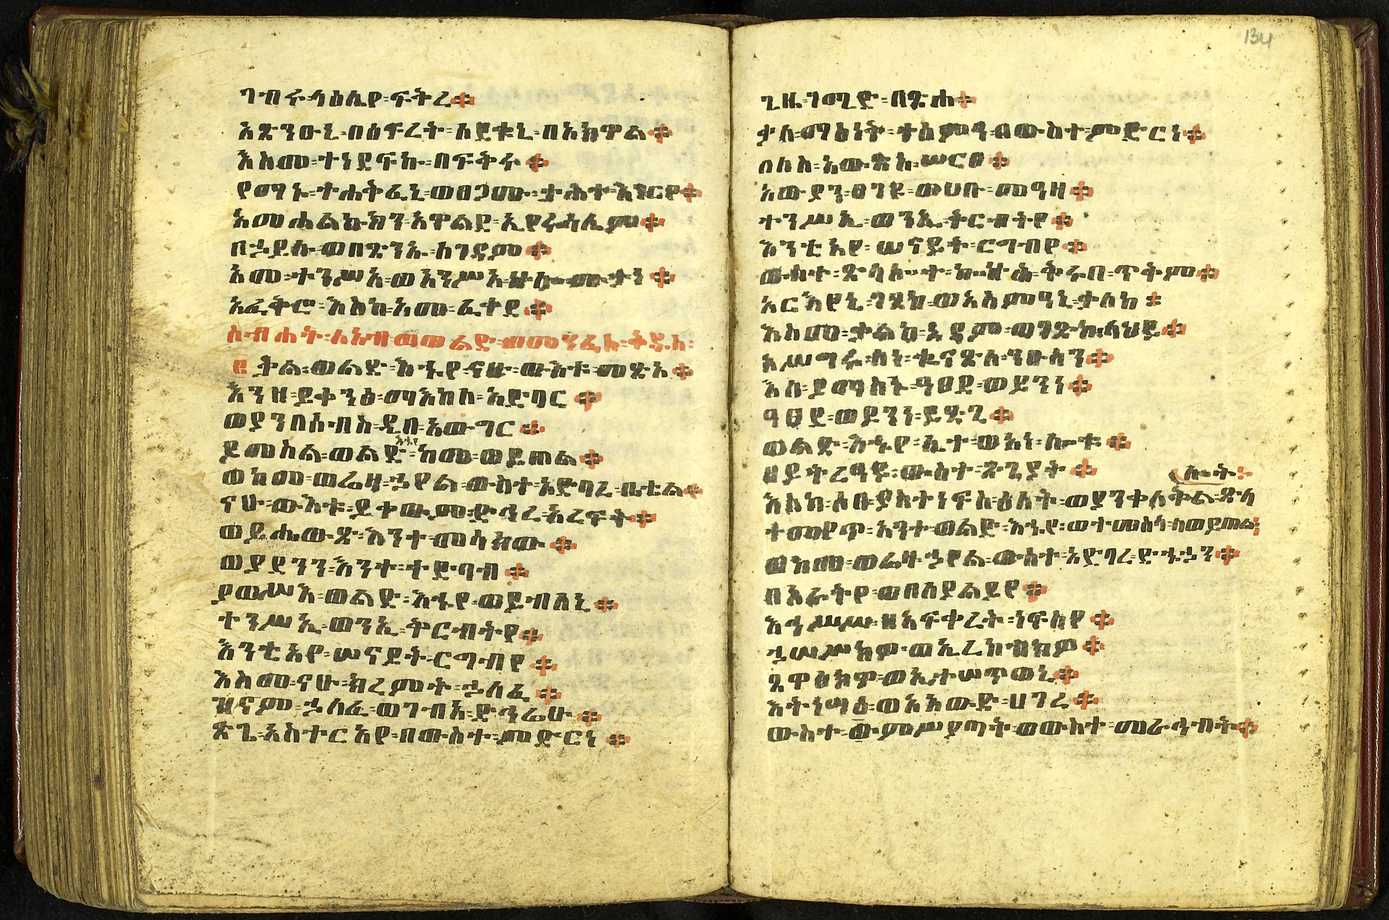 ገብሩ፡ላዕሌየ፡ፍቅረ፨
አጽንዑኒ፡በዕፍረት፡አደቁኒ፡በአክዋል፨
እስመ፡ተነደፍኩ፡በፍቅሩ፨
የማኑ፡ተሐቅፈኒ፡ወፀጋሙ፡ታሕተ፡
አመሐልኩክን፡አዋልደ፡ኢየሩሳሌም፨
በኃይሉ፡ወበጽንዑ፡ለገዳም፨
እመ፡ተንሥአ፡ወአንሥአ፡
አፈቅሮ፡እስከ፡አመ፡ፈተደ፨
ስብሐት፡ለአብ፡ወወልድ፡ወመንፈስ፡ቅዱስ፡
፪ ቃል፡ወልድ፡እኁየ፡ናሁ፡ውእቱ፡መጽአ፨
እንዘ፡ይቀንፅ፡ማእከለ፡አድባር፨
ወያንበሰብስ፡ዲበ፡አውግር፨
ይመስል፡ወልድ፡እኁየ፡ከመ፡ወይጠል፨
ወከመ፡ወሬዛ፡ኃየል፡ውስተ፡አድባረ፡ቤቴል፨
ናሁ፡ውእቱ፡ይተዉም፡ድኅረ፡አረፍት፨
ወይሔውጽ፡እንተ፡መሳክው፨
ወያደንን፡እንተ፡ተድባብ፨
ያወሥእ፡ወልድ፡እኁየ፡ወይብለኒ፨
ተንሥኢ፡ወንኢ፡ቅርብትየ፨
እንቲአየ፡ሠናይት፡ርግብየ፨
እስመ፡ናሁ፡ክረምት፡ኃለፈ፨
ዝናም፡ኃለፈ፡ወገብአ፡ድኅሬሁ፨
ጽጌ፡አስተርአየ፡በውስተ፡ምድርነ፨
134
ጊዜ፡ገሚድ፡በጽሐ፨
ቃለ፡ማዕነቅ፡ተሰምዓ፡በውስተ፡ምድርነ፨
በለስ፡አውጽአ፡ሠርፀ፨
አውያን፡ፀገዩ፡ወሀቡ፡መዓዛ፨
ተንሥኢ፡ወንኢ፡ቅርብትየ፨
እንቲአየ፡ሠናይት፡ርግብየ፨
ውስተ፡ጽላሎተ፡ኰኵሕ፡ቅሩበ፡ጥቅም፨
አርእየኒ፡ገጸከ፡ወአስምዓኒ፡ቃለከ፨
እስመ፡ቃልከ፡አዳም፡ወገጽከ፡ላህይ፨
አሥግሩ፡ለነ፡ቈናጽለ፡ንዑሳን፨
እለ፡ያማስኑ፡ዓፀደ፡ወይንነ፨
ዓፀደ፡ወይንነ፡ይጼጊ፨
ወልድ፡እኁየ፡ሊተ፡ወአነ፡ሎቱ፨
ዘይትረዓይ፡ውስተ፡ጽጌያት፨ ሎት፡
እስከ፡ሶበ፡ያስተነፍስ፡ዕለት፡ወያንቀለቅል፡ጽላ
ተመየጥ፡አንተ፡ወልድ፡እኁየ፡ወተመሰላ፡ለወይጠል፨
ወከመ፡ወሬዛ፡ኃየል፡ውስተ፡አድባረ፡
በአራትየ፡ወበሰያልይየ፨
እኅሥሥ፡ዘአፍቀረት፡ነፍስየ፨
ኀሠሥክዎ፡ወኢረከብክዎ፨
ጸዋዕክዎ፡ወኢተሠጥወኒ፨
እትነሣዕ፡ወአአውድ፡ሀገረ፨
ውስተ፡ምሥያጣት፡ወውስተ፡መራኅብት፨